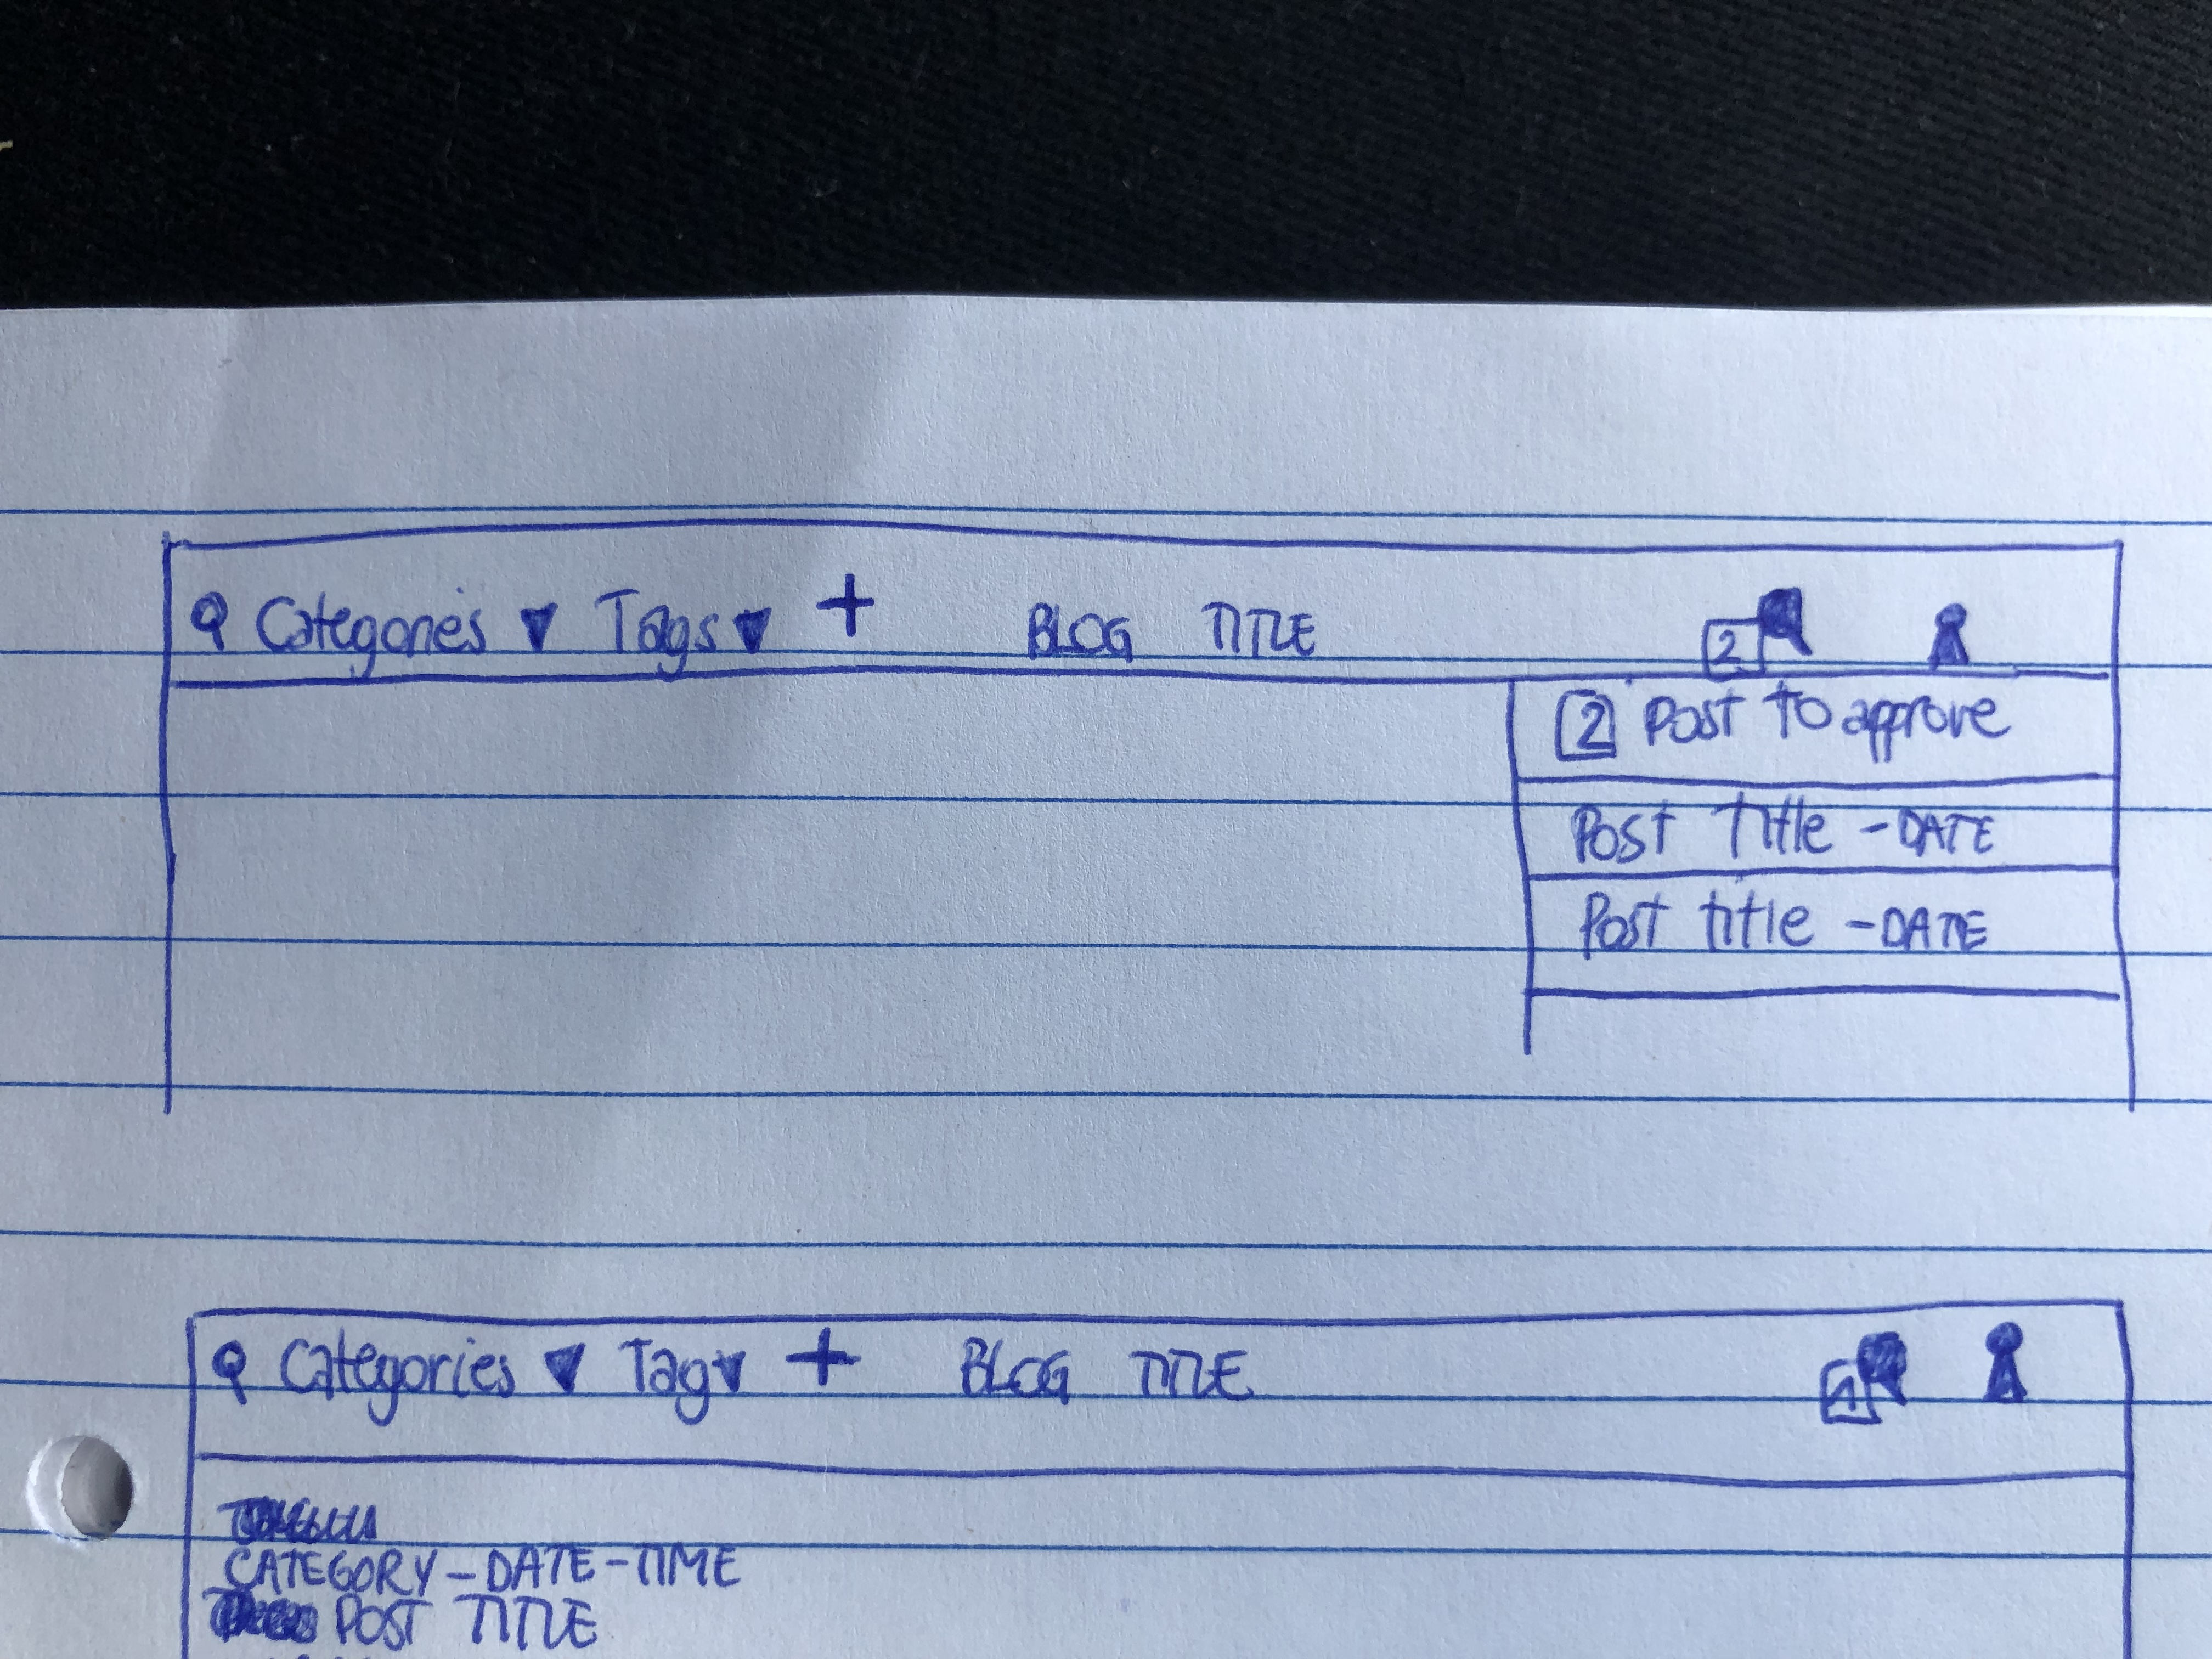 Categories ▼ Tags ▼ + BLOG TITLE 2
2 Post to approve
Post Title - DATE
Post title - DATE
Categories ▼ Tag ▼ + BLOG TITLE 1
CATEGORY - DATE - TIME
POST TITLE